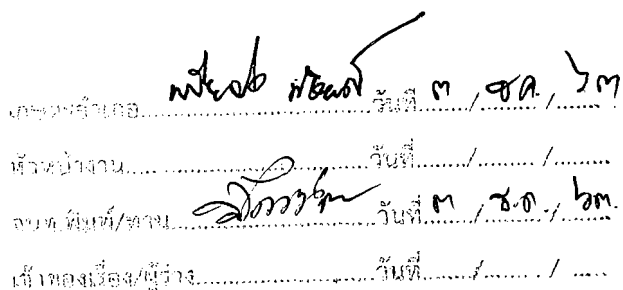 เกษตรอำเภอ..........วันที่ ๓ / ธค. / ๖๓
หัวหน้างาน..........วันที่......../......../........
จนท.พิมพ์/ทาน..........วันที่ ๓ / ธ.ค. / ๖๓.
เจ้าของเรื่อง/ผู้ร่าง..........วันที่......../......../........